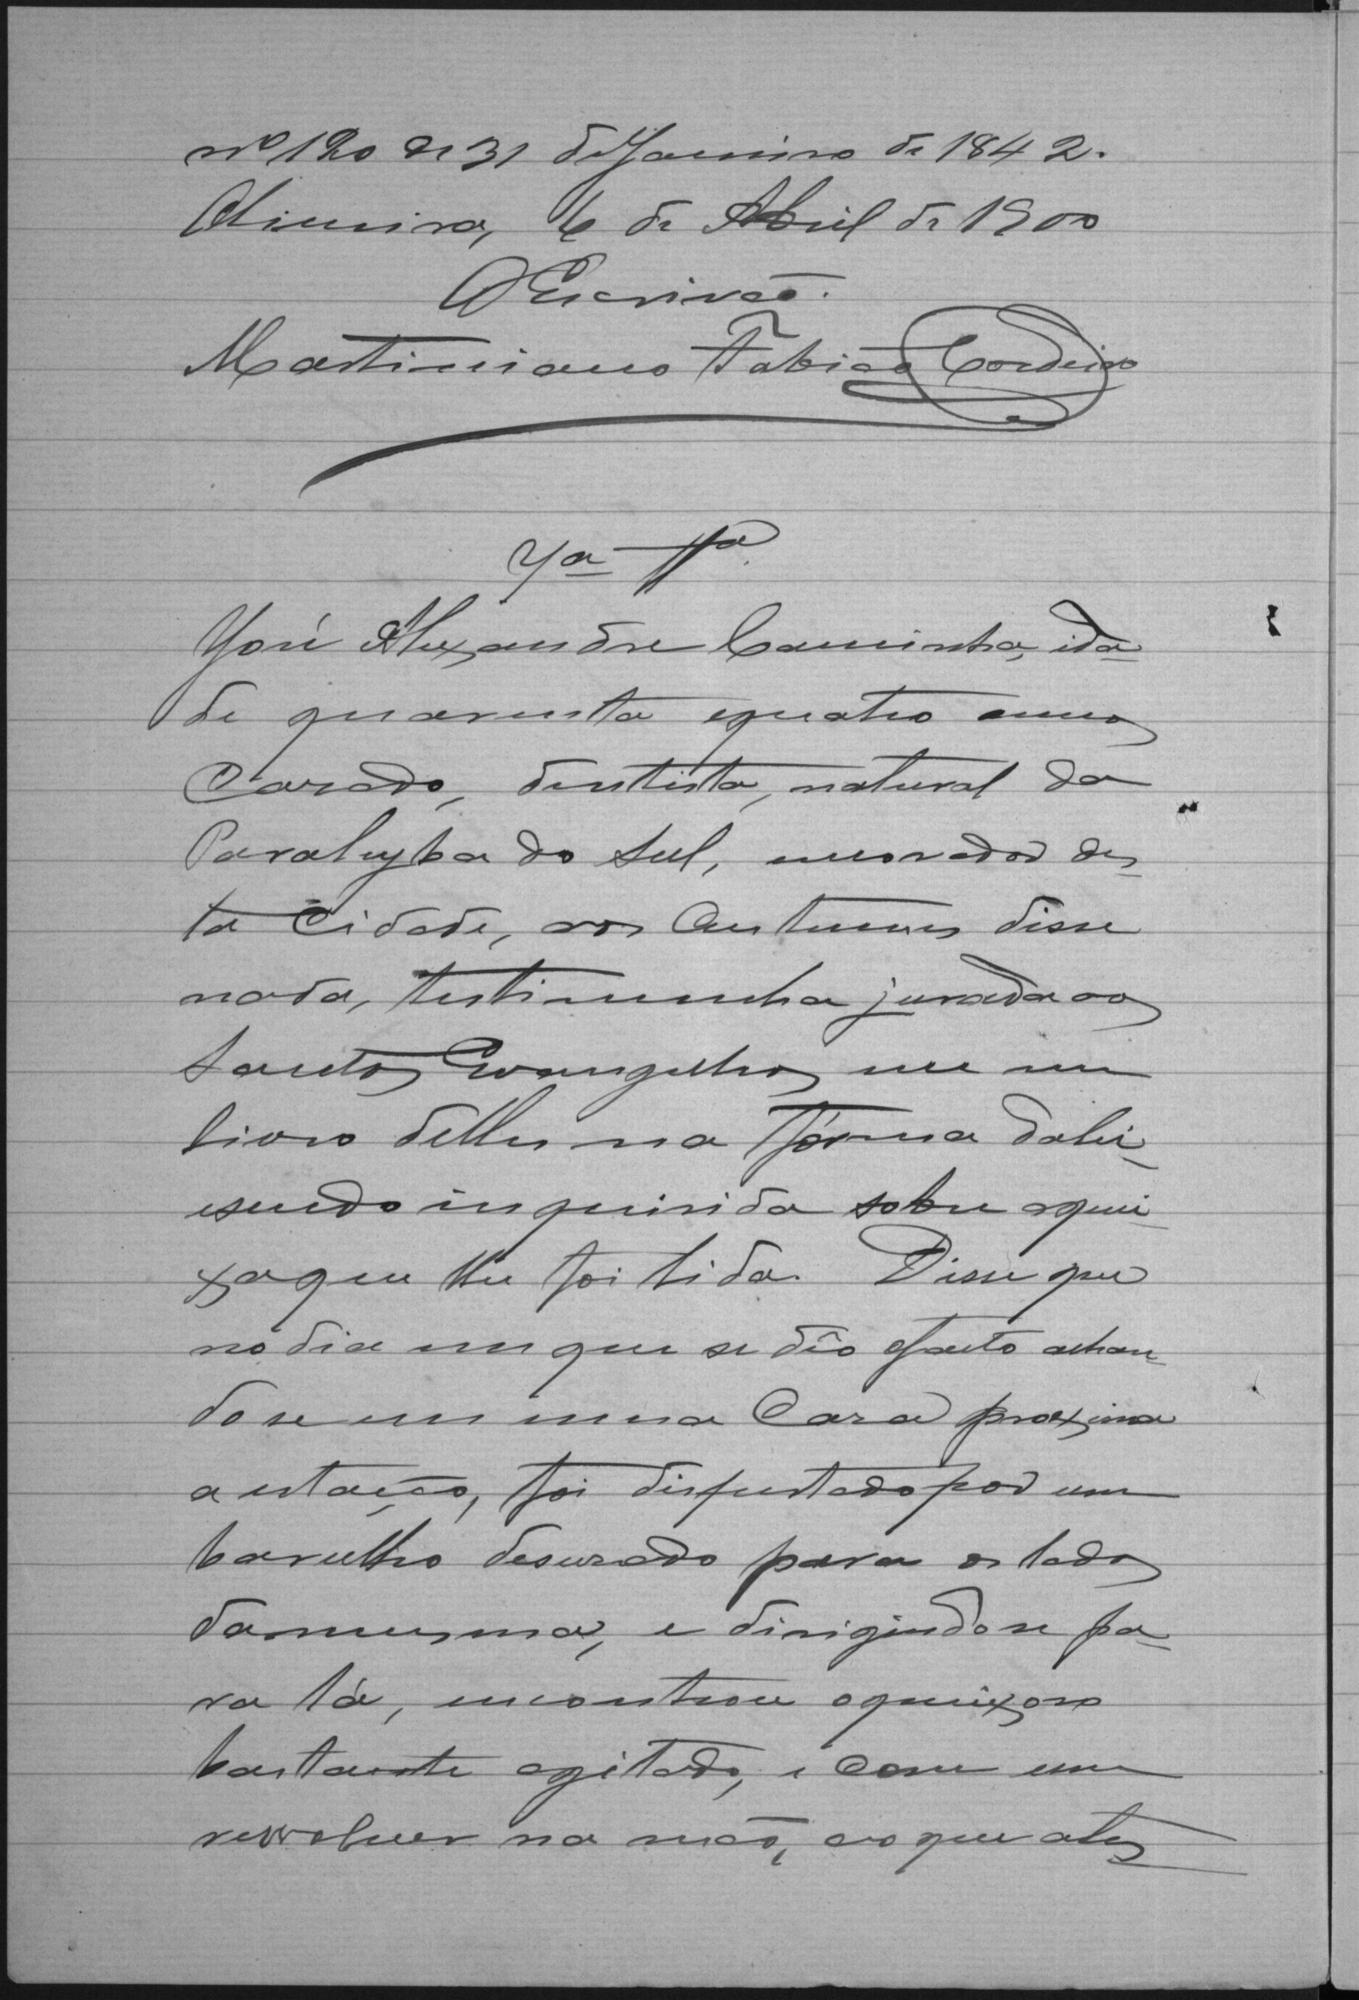 nº 120 de 31 de Janeiro de 1842.
Oliveira, 6 de Abril de 1900
O Escrivão.
Martiniano Fabião Cordeiro
7ª Ttª.
José Alexandre Caminha, ida-
de quarenta equatro annos
Casado, dentista, natural da
Parahyba do Sul, morador des-
ta Cidade, aos Custumes disse
nada, testimunha jurada aos
Santos Evangelhos em um
livro delles na fórma dalei-
esendo inquirida sobre aquei-
xa que lhe foi lida. Disse que
no dia em que se dêo ofacto achan-
dose em uma Casa proxima
a estação, foi dispertado por um
barulho desusado para os lados
damesma, e dirigindose pa-
ra lá, encontrou oqueixoso
bastante agitado, e com um
revolver na mão, ao que